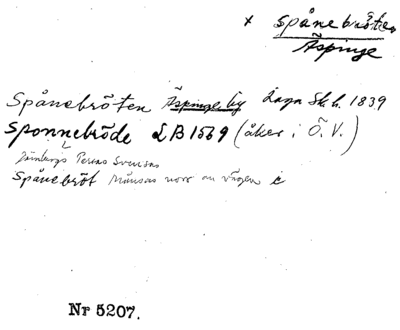 x Spånebröten
Äspinge
Spånebröten Äspinge by Laga Sk. h. 1839
Sponnebröde LB 1569 (åker i Ö. V.)
Pernas Svensas
Spånebröt Månsas norr om vägen c
Nr 5207.